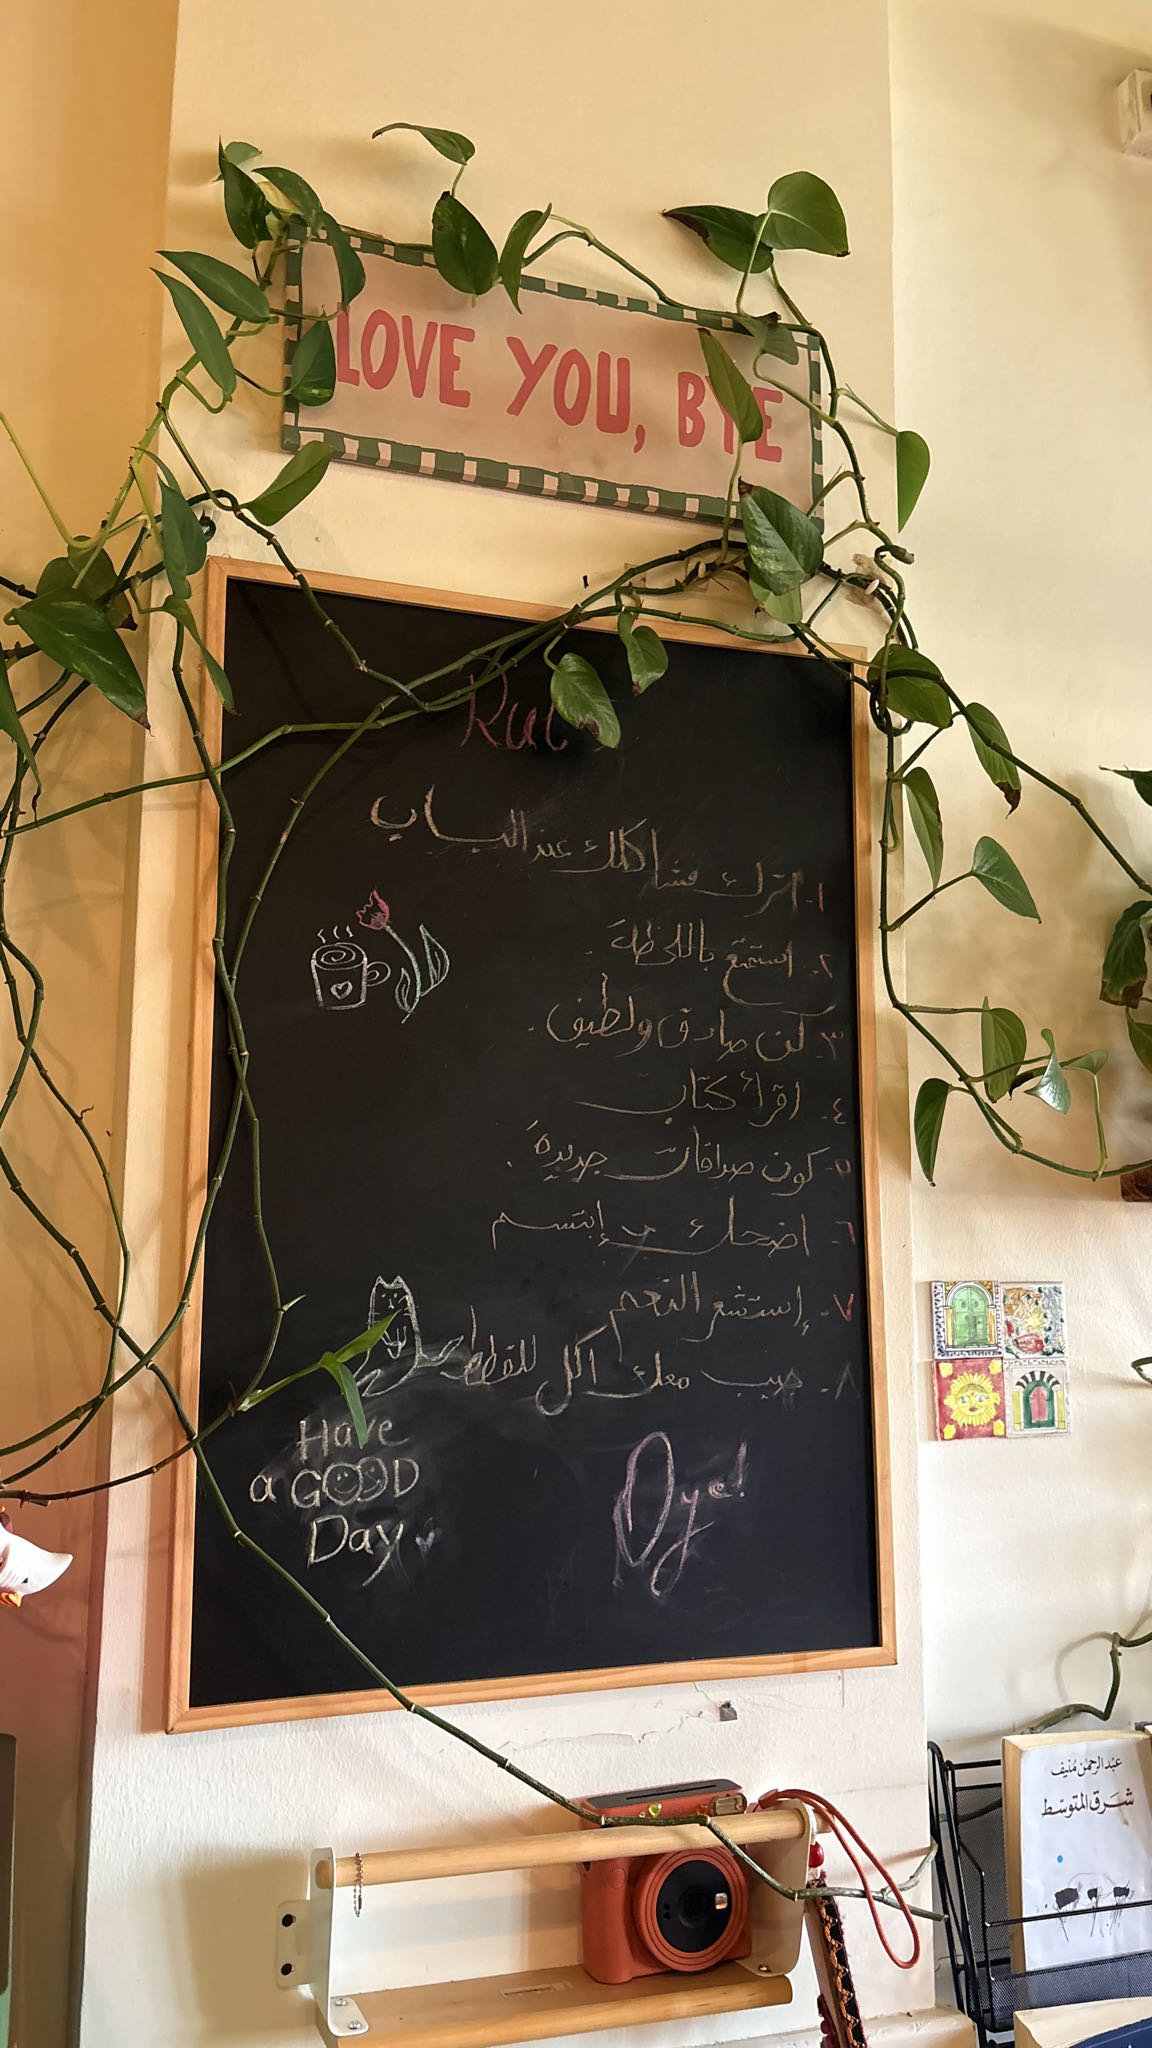 LOVE YOU, BYE
١. اترك مشاكلك عند الباب
٢. استمتع باللحظة.
٣. كن صادق ولطيف.
٤. اقرأ كتاب
٥. كون صداقات جديدة.
٦. اضحك و إبتسم
٧. إستشعر النعم
٨. جيب معك اكل للقطط
Have
a GOOD
Day
Bye!
عبد الرحمن منيف
شرق المتوسط